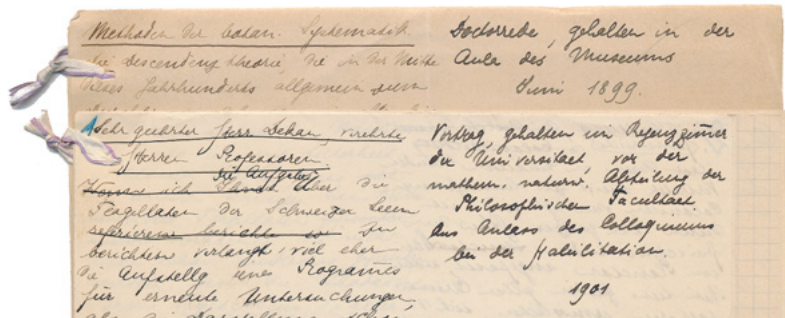 Methoden der botan. Systematik
Die Descendenztheorie, die in der Mitte
dieses Jahrhunderts allgemein zum
Doctorrede, gehalten in der
Aula des Museums
Juni 1899.
Sehr geehrter Herr Dekan, verehrte
Herren Professoren.
die Aufgabe
ich Ihnen über die
Flagellaten der Schweizer Seen
referieren berichte zu
berichten verlangt, viel eher
die Aufstellg eines Programes
für erneute Untersuchungen,
als
Vortrag, gehalten im Regenzzimmer
der Universitaet, vor der
mathem. naturw. Abteilung der
Philosophischen Facultaet.
Aus Anlass des Colloquiums
bei der Habilitation.
1901